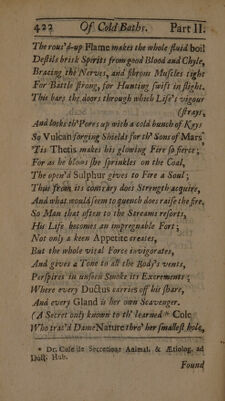 422 Of Cold Baths. Part II.
The rous'd-up Flame makes the whole fluid boil
Destils brisk Spirits from good Blood and Chyle,
Bracing the Nerves, and strong Muscles tight
For Battle strong, for Hunting swift in flight.
This bars the doors through which Life's vigour
(strays,
And locks th' Pores up with a cold bunch of Keys
So Vulcan forging Shields for th' Sons of Mars
'Tis Thetis makes his glowing Fire so fierce;
For as he blows she sprinkles on the Coal,
The open'd Sulphur gives to Fire a Soul;
Thus from its contrary does Strength acquire,
And what would seem to quench does raise the fire,
So Man that often to the Streams resorts,
His Life becomes an impregnable Fort;
Not only a keen Appetite creates,
But the whole vital Force invigorates,
And gives a Tone to all the Body's vents,
Perspires in unseen Smoke its Excrements;
Where every Ductus carries off his share,
And every Gland is her own Scavenger.
(A Secret only known to th' learned * Cole
Who trac'd Dame Nature thro' her smallest hole,
* Dr. Cole de Secretione Animal. & Ætiolog. ad
Hub.
Found